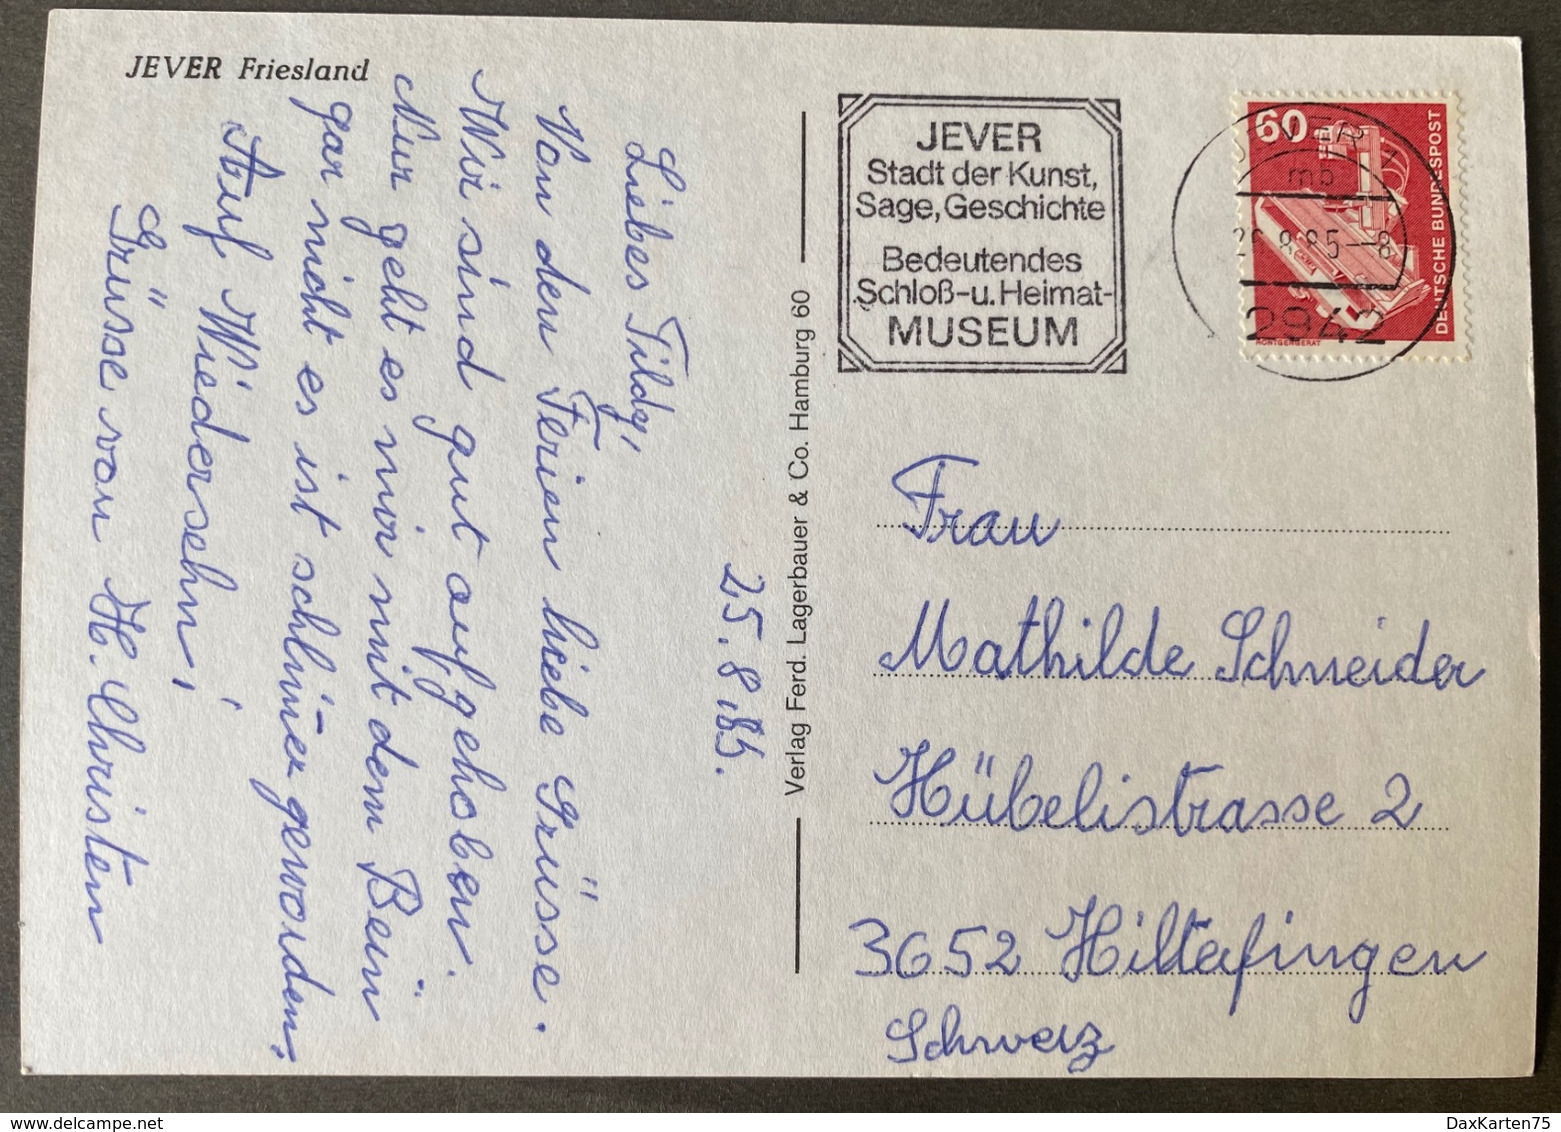 JEVER Friesland
25.8.85.
Liebes Tildy,
Von den Ferien liebe Grüsse.
Wir sind gut aufgehoben.
Nur geht es mir mit dem Bein
gar nicht es ist schlimer geworden.
Auf Wiedersehn,
Grüsse von H. Christen
Verlag Ferd. Lagerbauer & Co. Hamburg 60
JEVER
Stadt der Kunst,
Sage, Geschichte
Bedeutendes
Schloß-u. Heimat-
MUSEUM
60
DEUTSCHE BUNDESPOST
RÖNTGENGERÄT
JEVER 1
mb
26.8.85-8
2942
Frau
Mathilde Schneider
Hübelistrasse 2
3652 Hilterfingen
Schweiz
DaxKarten75